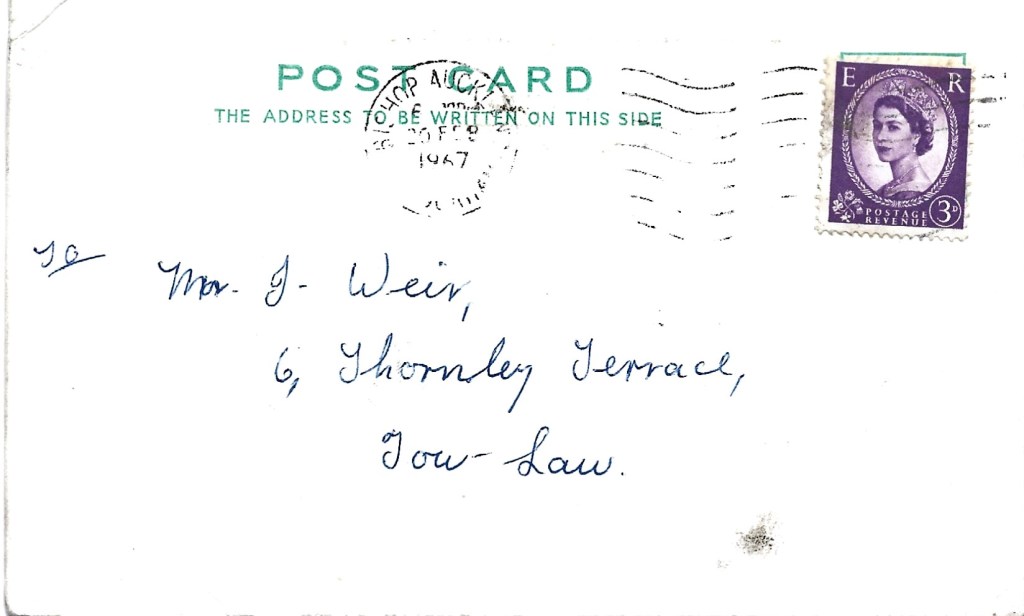 POST CARD
THE ADDRESS TO BE WRITTEN ON THIS SIDE
20 FEB
1967
E R
POSTAGE
REVENUE
3D
To
Mr. J. Weir,
6, Thornley Terrace,
Tow-Law.